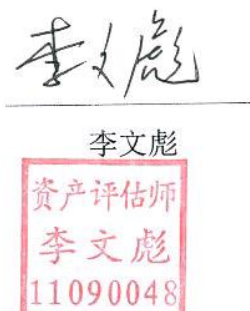 李文彪
李文彪
资产评估师
李文彪
11090048